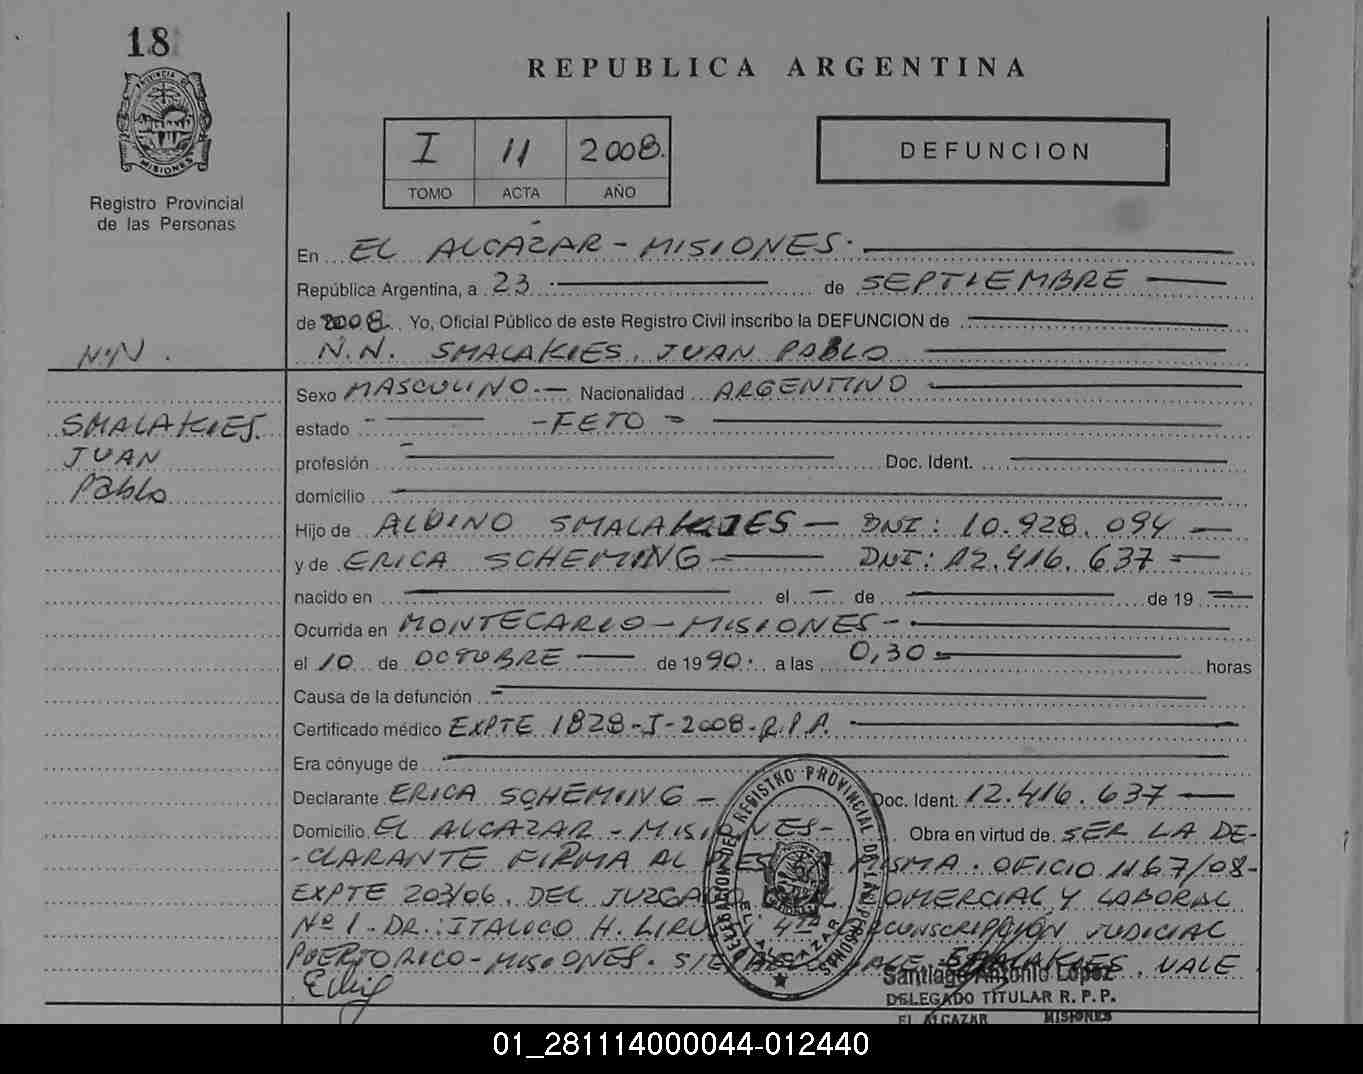 18
PROVINCIA DE
MISIONES
Registro Provincial
de las Personas
REPUBLICA ARGENTINA
I 11 2008.
TOMO ACTA AÑO
DEFUNCION
En EL ALCAZAR - MISIONES.
República Argentina, a 23 de SEPTIEMBRE
de 2008. Yo, Oficial Público de este Registro Civil inscribo la DEFUNCION de
N.N. SMALAKIES, JUAN PABLO
N.N.
SMALAKIES.
JUAN
Pablo
Sexo MASCULINO.- Nacionalidad ARGENTINO
estado - FETO -
profesión Doc. Ident.
domicilio
Hijo de ALVINO SMALAKIES - DNI: 10.928.094 -
y de ERICA SCHEMING - DNI: 12.416.637 -
nacido en el de de 19
Ocurrida en MONTECARLO - MISIONES -
el 10 de OCTUBRE de 1990. a las 0,30 horas
Causa de la defunción
Certificado médico EXPTE 1828-I-2008-R.P.P.
Era cónyuge de
Declarante ERICA SCHEMING - Doc. Ident. 12.416.637
Domicilio EL ALCAZAR - MISIONES - Obra en virtud de SER LA DE-
-CLARANTE FIRMA AL MISMA. OFICIO 1167/08-
EXPTE 203/06. DEL JUZGADO COMERCIAL Y LABORAL
Nº 1. DR.: H. 4ta CIRCUNSCRIPCIÓN JUDICIAL
PUERTO RICO - MISIONES. SMALAKIES. VALE
DELEGACION DEL REGISTRO PROVINCIAL DE LAS PERSONAS
EL ALCAZAR
Santiago Antonio López
DELEGADO TITULAR R. P. P.
EL ALCAZAR MISIONES
01_281114000044-012440